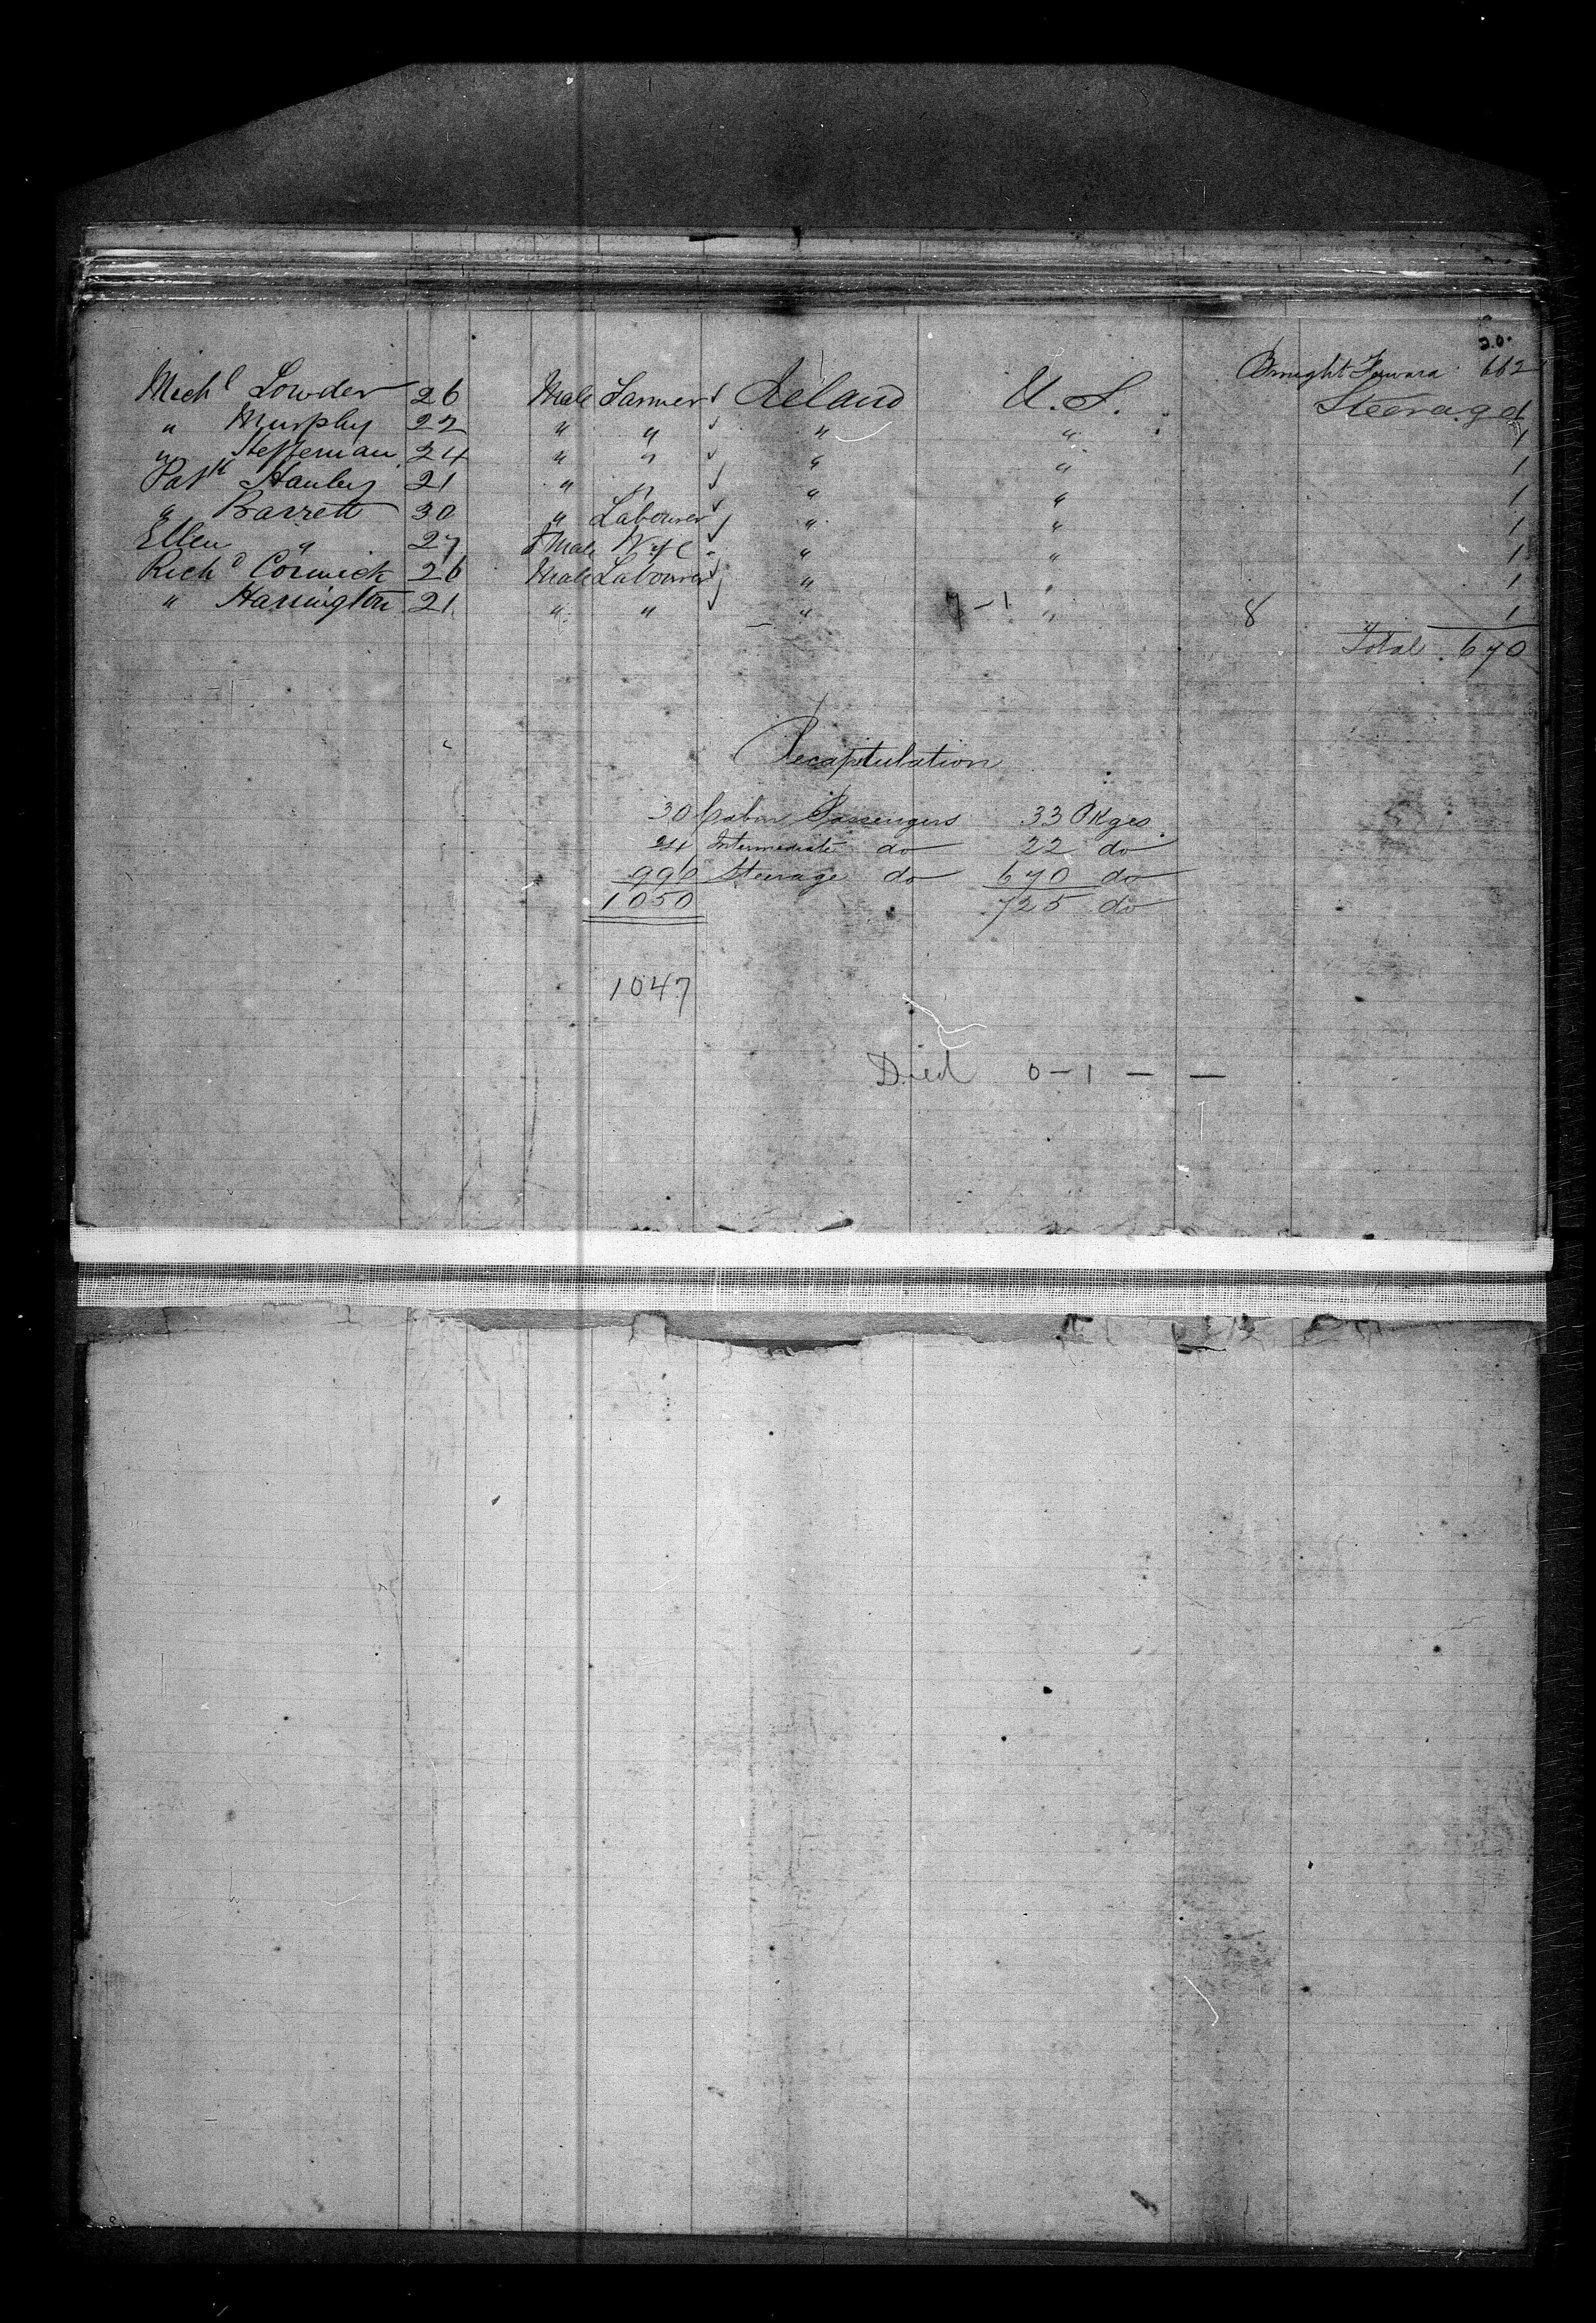 20.
Brought Forward 662
Mich^l Lowder 26 Male Farmer Ireland U.S. Steerage 1
" Murphy 22 " " " " 1
" Heffernan 24 " " " " 1
Pat^k Hanley 21 " " " " 1
" Barrett 30 " Labourer " " 1
Ellen " 27 fMale Wife " " 1
Rich^d Cormick 26 Male Labourer " " 1
" Harrington 21 " " " 7-1 " 8 1
Total 670
Recapitulation
30 Cabin Passengers 33 Pkges
24 Intermediate do 22 do
996 Steerage do 670 do
1050 725 do
1047
Died 0-1 — —